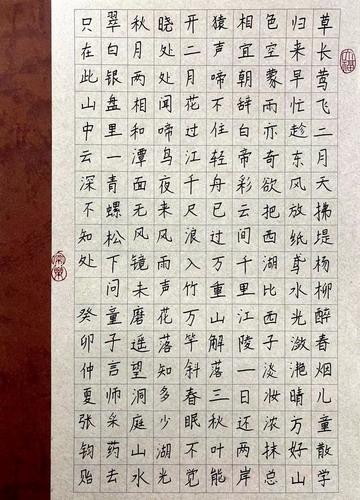 草长莺飞二月天拂堤杨柳醉春烟儿童散学
归来早忙趁东风放纸鸢水光潋滟晴方好山
色空蒙雨亦奇欲把西湖比西子淡妆浓抹总
相宜朝辞白帝彩云间千里江陵一日还两岸
猿声啼不住轻舟已过万重山解落三秋叶能
开二月花过江千尺浪入竹万竿斜春眠不觉
晓处处闻啼鸟夜来风雨声花落知多少湖光
秋月两相和潭面无风镜未磨遥望洞庭山水
翠白银盘里一青螺松下问童子言师采药去
只在此山中云深不知处 癸卯仲夏张钧贻